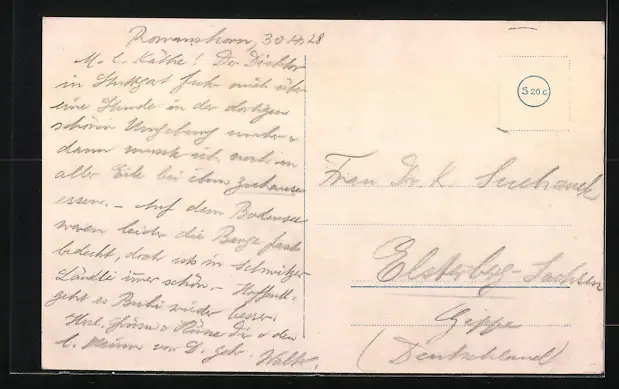 Romanshorn, 30.4.28
M. l. Käthe! Der Direktor
in Stuttgart fuhr mich über
eine Stunde in der dortigen
schönen Umgebung umher u
dann musste ich noch in
aller Eile bei ihm zuhause
essen. – Auf dem Bodensee
waren leider die Berge fast
bedeckt, doch ists im Schwizer
Ländli immer schön. – Hoffentl.
geht es Bubi wieder besser.
Herzl. Grüsse u Küsse Dir u den
l. Kleinen von D. Walter
S 20 c
Frau Dr. K. Suchanek
Elsterberg-Sachsen
(Deutschland)